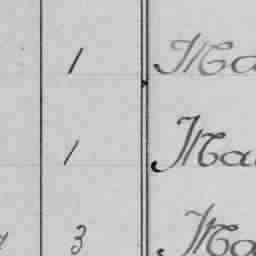 1 Ma
1 Ma
3 Ma